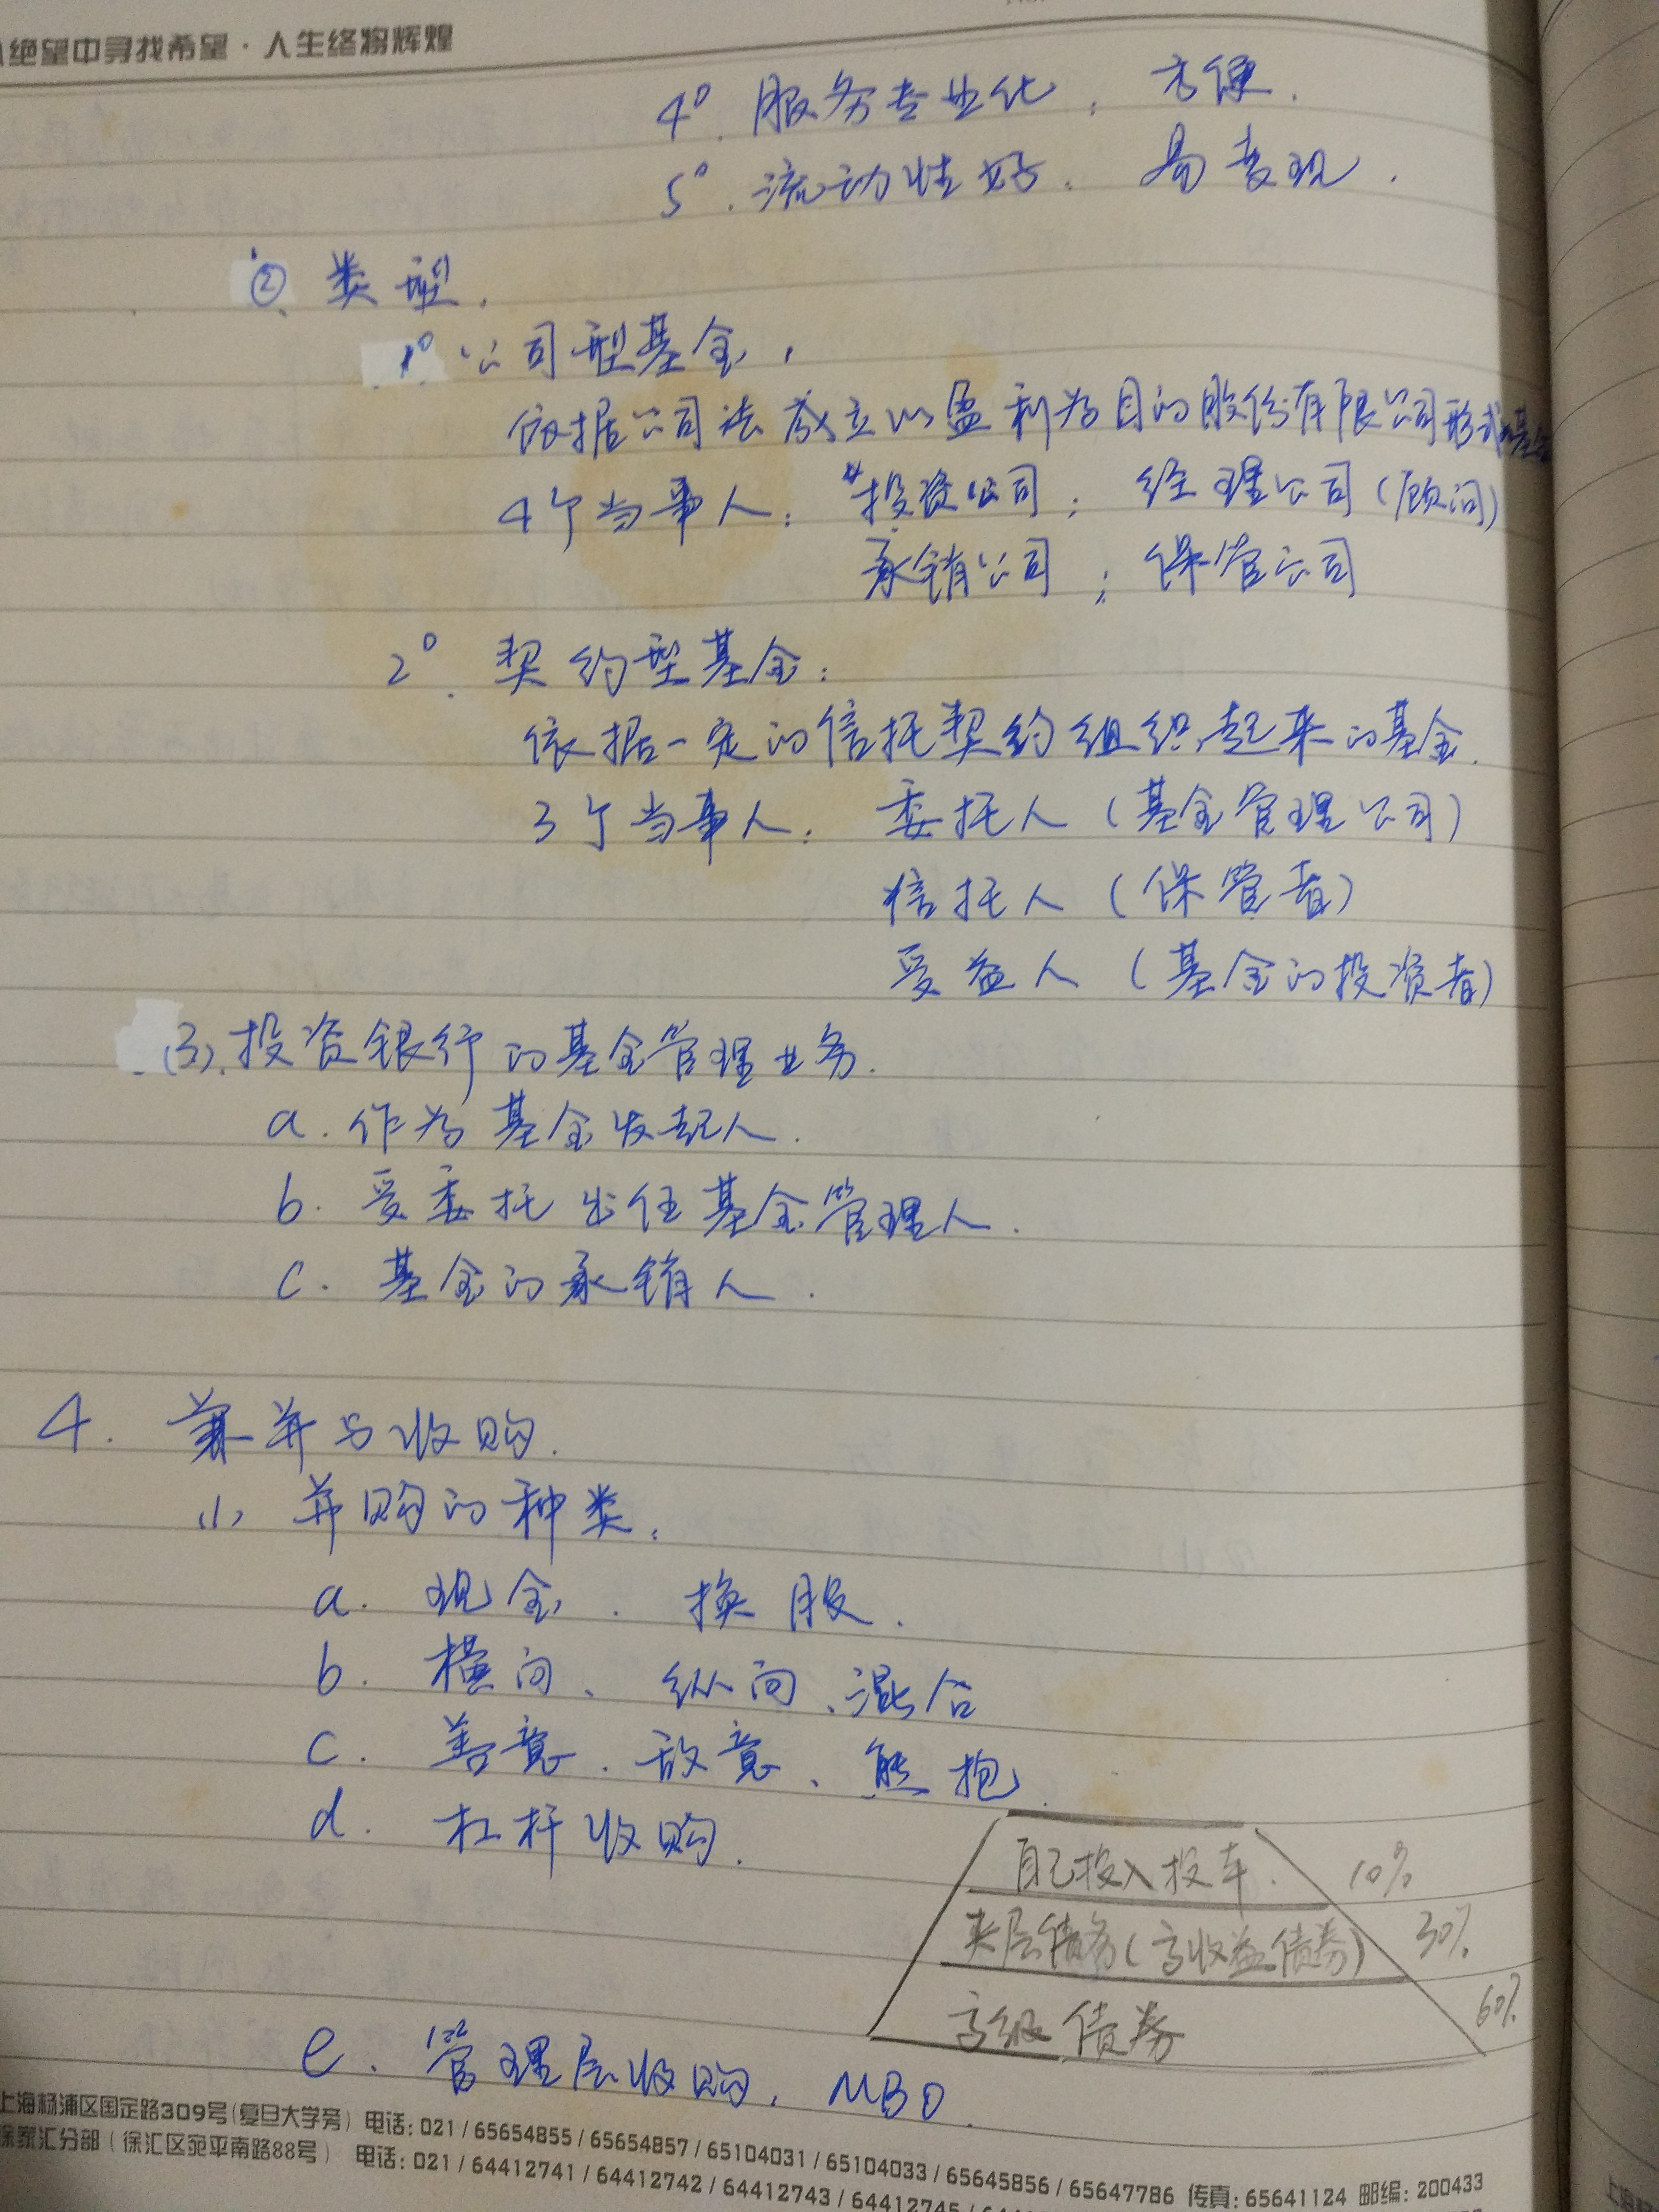 绝望中寻找希望·人生终将辉煌
4°. 服务专业化, 方便.
5°. 流动性好. 易变现.
② 类型.
1° 公司型基金,
依据公司法成立以盈利为目的股份有限公司形式的基金
4个当事人: 投资公司; 经理公司(顾问)
承销公司; 保管公司
2°. 契约型基金:
依据一定的信托契约组织起来的基金.
3个当事人: 委托人(基金管理公司)
信托人(保管者)
受益人(基金的投资者)
(3). 投资银行的基金管理业务.
a. 作为基金发起人.
b. 受委托出任基金管理人.
c. 基金的承销人.
4. 兼并与收购.
(1) 并购的种类:
a. 现金. 换股.
b. 横向、纵向、混合
c. 善意、敌意、熊抱.
d. 杠杆收购.
自己投入 10%
夹层债务(高收益债券) 30%
高级债券 60%
e. 管理层收购, MBO.
上海杨浦区国定路309号(复旦大学旁) 电话: 021 / 65654855 / 65654857 / 65104031 / 65104033 / 65645856 / 65647786 传真: 65641124 邮编: 200433
徐家汇分部(徐汇区宛平南路88号) 电话: 021 / 64412741 / 64412742 / 64412743 / 64412745